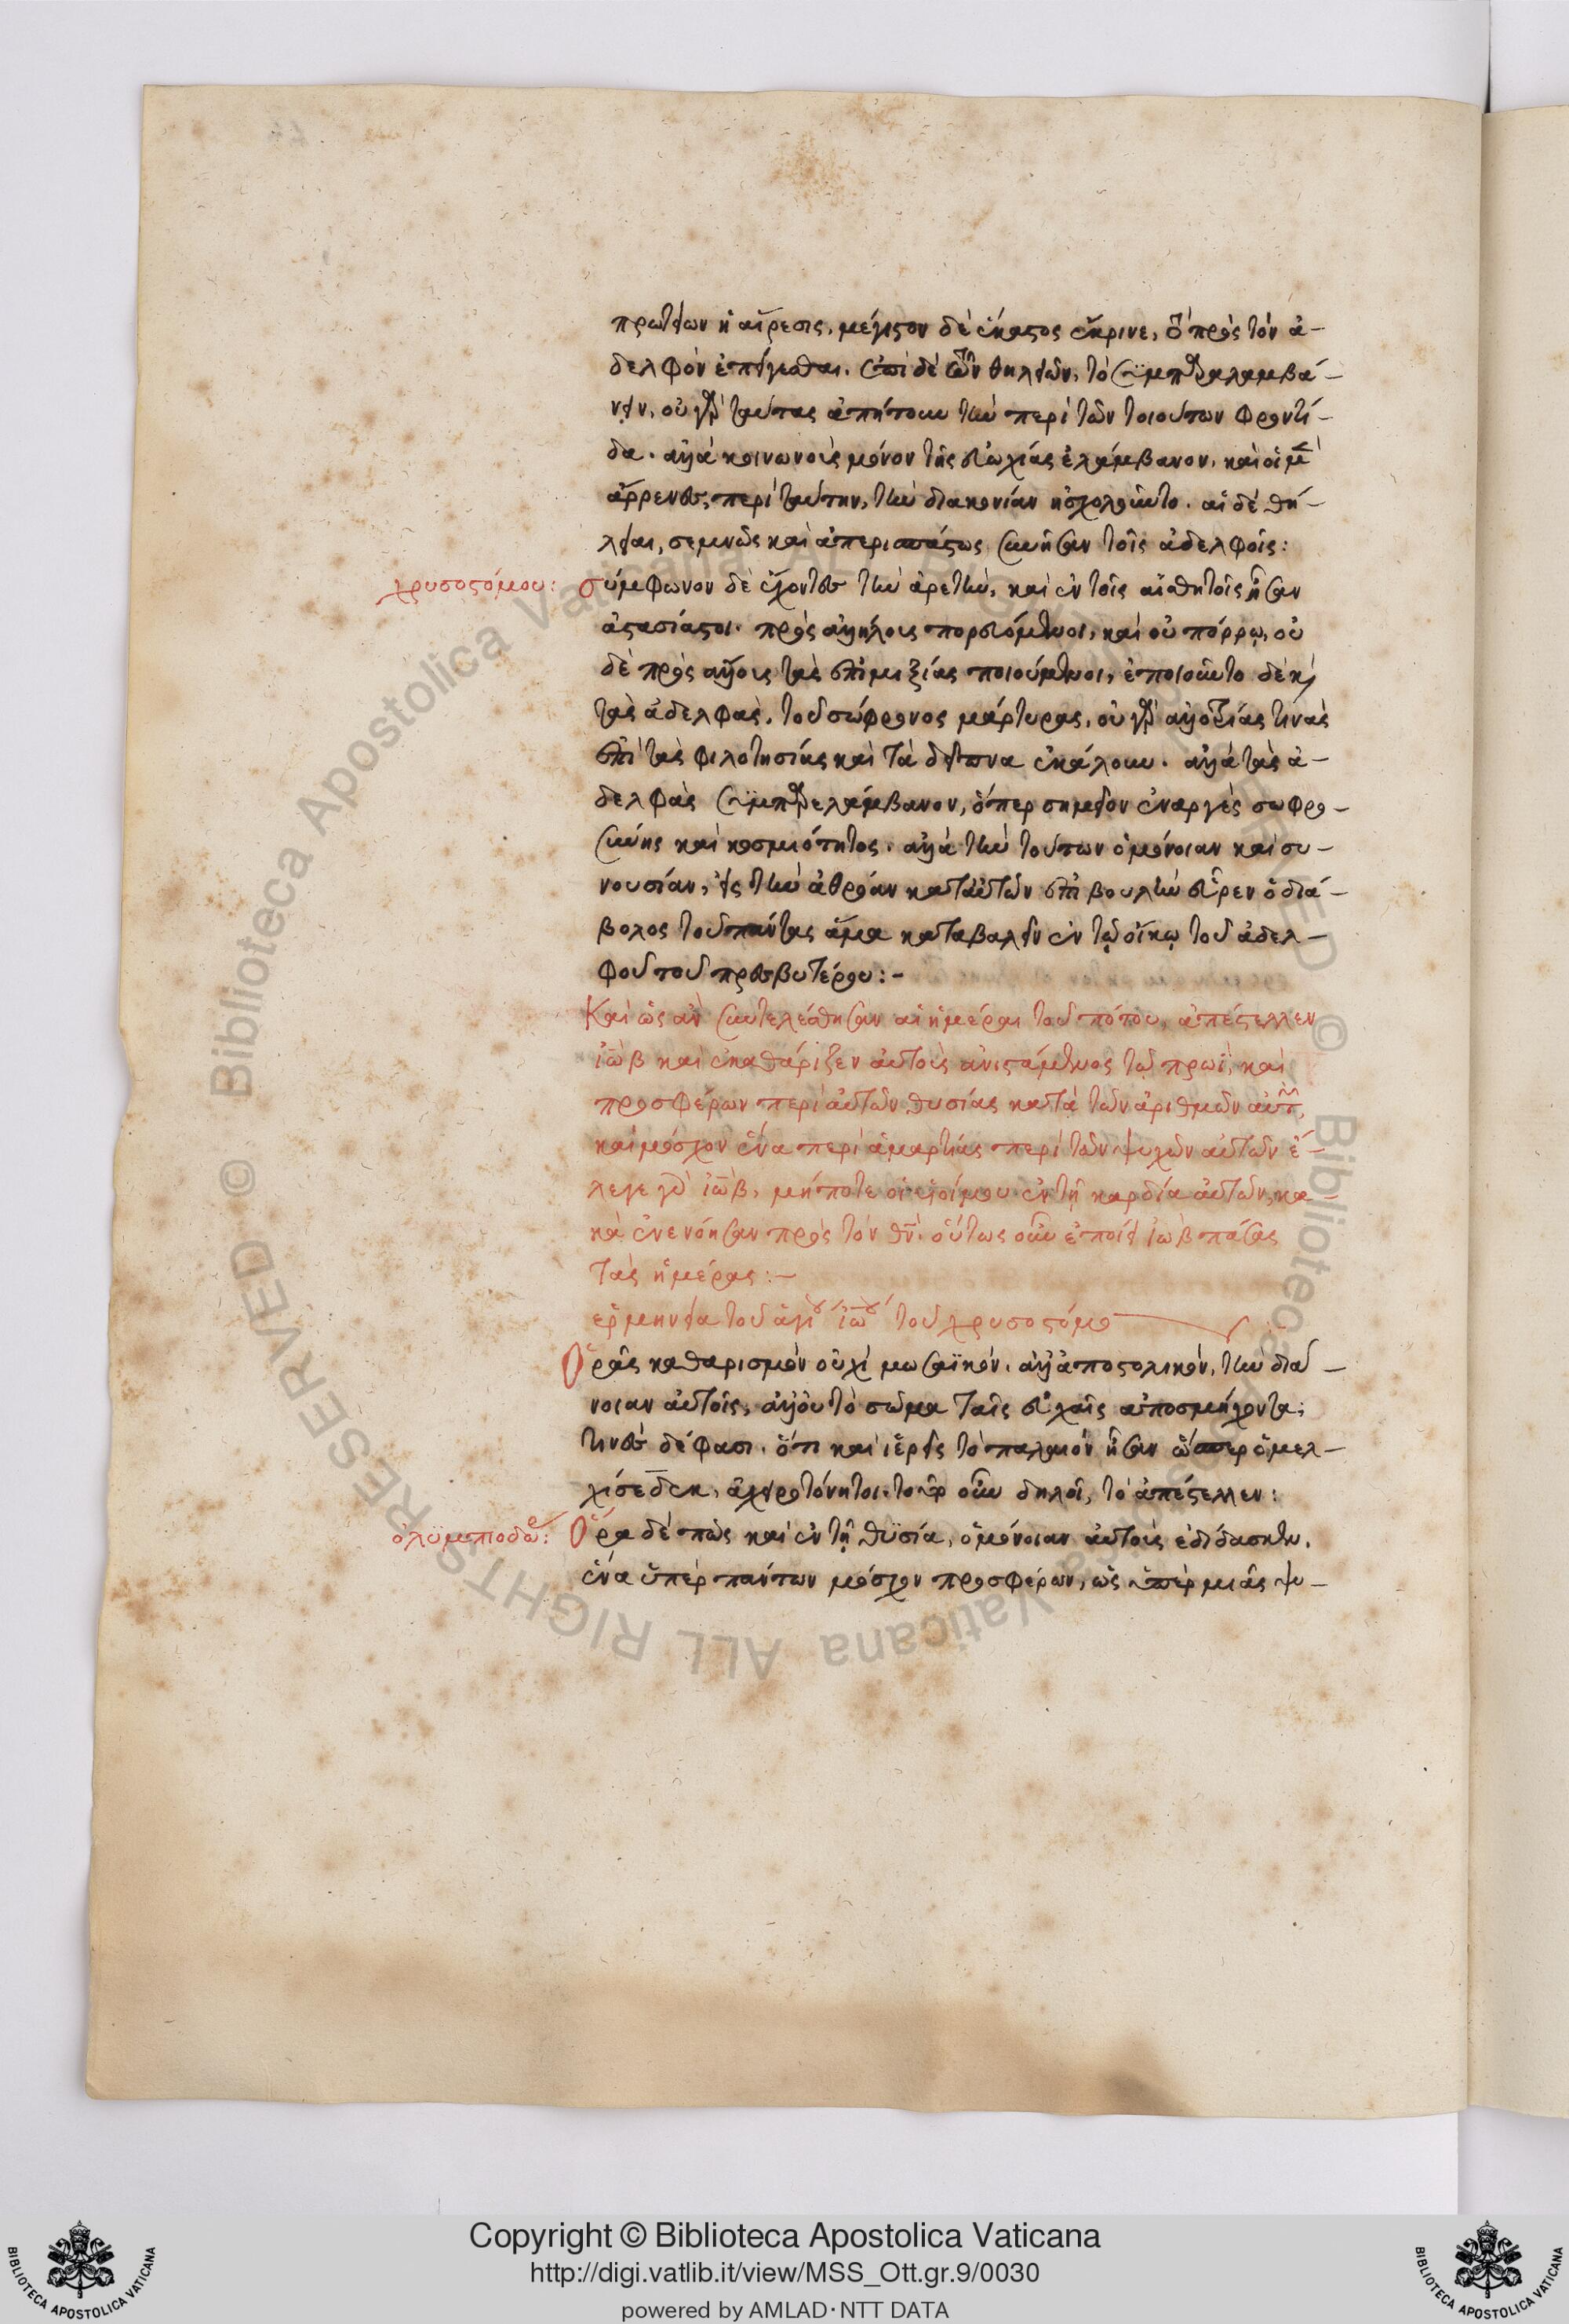 πρωτείων ἡ αἵρεσις, μέγιστον δὲ ἕκαστος ἔκρινε, τὸ πρὸς τὸν ἀ-
δελφὸν ἐπείγεσθαι. ἐπὶ δὲ τῶν θηλειῶν, τὸ συμπαραλαμβά-
νειν, οὐ γὰρ ταύτας ἀπῄτουν τὴν περὶ τῶν τοιούτων φροντί-
δα. ἀλλὰ κοινωνοὺς μόνον τῆς εὐωχίας ἐλάμβανον, καὶ οἱ μὲν
ἄρρενες, περὶ ταύτην, τὴν διακονίαν ἠσχολοῦντο. αἱ δὲ θή-
λειαι, σεμνῶς καὶ ἀπερισπάστως συνῆσαν τοῖς ἀδελφοῖς:
χρυσοστόμου: σύμφωνον δὲ ἔχοντες τὴν ἀρετὴν, καὶ ἐν τοῖς αἰσθητοῖς ἦσαν
ἀστασίαστοι. πρὸς ἀλλήλους πορευόμενοι, καὶ οὐ πόρρω, οὐ
δὲ πρὸς ἄλλους τὰς ἐπιμιξίας ποιούμενοι, ἐποιοῦντο δὲ κὶ
τὰς ἀδελφὰς, τοῦ σώφρονος μάρτυρας, οὐ γὰρ ἀλλοτρίας τινὰς
ἐπὶ τὰς φιλοτησίας καὶ τὰ δεῖπνα ἐκάλουν. ἀλλὰ τὰς ἀ-
δελφὰς συμπαρελάμβανον, ὅπερ σημεῖον ἐναργὲς σωφρο-
σύνης καὶ κοσμιότητος. ἀλλὰ τὴν τούτων ὁμόνοιαν καὶ συ-
νουσίαν, εἰς τὴν ἀθρόαν κατ' αὐτῶν ἐπιβουλὴν εὗρεν ὁ διά-
βολος τοῦ πάντας ἅμα καταβαλεῖν ἐν τῷ οἴκῳ τοῦ ἀδελ-
φοῦ τοῦ πρεσβυτέρου:-
Καὶ ὡς ἂν συνετελέσθησαν αἱ ἡμέραι τοῦ πότου, ἀπέστελλεν
ἰὼβ καὶ ἐκαθάριζεν αὐτοὺς ἀνιστάμενος τῷ πρωῒ, καὶ
προσφέρων περὶ αὐτῶν θυσίας κατὰ τῶν ἀριθμῶν αὐτῶν,
καὶ μόσχον ἕνα περὶ ἁμαρτίας περὶ τῶν ψυχῶν αὐτῶν ἔ-
λεγε γὰρ ἰὼβ, μήποτε οἱ υἱοί μου ἐν τῇ καρδία αὐτῶν, κα-
κὰ ἐνενόησαν πρὸς τὸν θν. οὕτως οὖν ἐποίει ἰὼβ πάσας
τὰς ἡμέρας:-
ἑρμηνεία τοῦ ἁγίου ἰω τοῦ χρυσοστόμου
Ὁρᾶς καθαρισμὸν οὐχὶ μωσαϊκὸν. ἀλλ' ἀποστολικόν, τὴν διά-
νοιαν αὐτοῖς, ἀλλ' οὐ τὸ σῶμα ταῖς εὐχαῖς ἀποσμήχοντα;
τινὲς δέ φασι. ὅτι καὶ ἱερεῖς τὸ παλαιὸν ἦσαν ὥσπερ ὁ μελ-
χισεδὲκ, ἀχειροτόνητοι. τοῦτο οὖν δηλοῖ, τὸ ἀπέστελλεν:
ὀλυμπιοδώρου: Ὅρα δὲ πῶς καὶ ἐν τῇ θυσία, ὁμόνοιαν αὐτοὺς ἐδίδασκεν.
ἕνα ὑπὲρ πάντων μόσχον προσφέρων, ὡς ὑπὲρ μιᾶς ψυ-
Copyright © Biblioteca Apostolica Vaticana
http://digi.vatlib.it/view/MSS_Ott.gr.9/0030
powered by AMLAD·NTT DATA